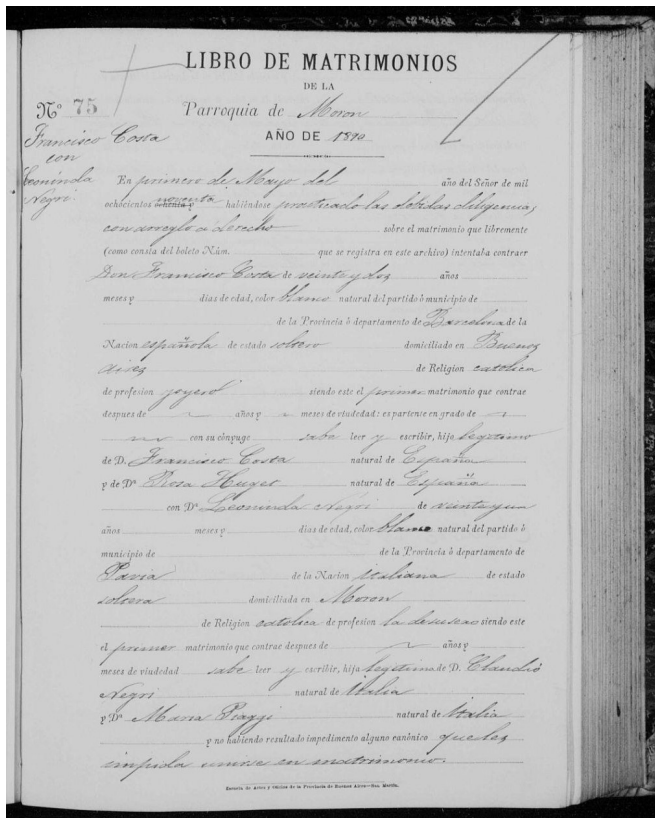 LIBRO DE MATRIMONIOS
DE LA
Nº 75 Parroquia de Moron
Francisco Costa
con
Leonínda
Negri.
AÑO DE 1890
En primero de Mayo del año del Señor de mil
ochocientos ochenta y noventa habiéndose practicado las debidas diligencias,
con arreglo a derecho sobre el matrimonio que libremente
(como consta del boleto Núm. que se registra en este archivo) intentaba contraer
Don Francisco Costa de veinte y dos años
meses y dias de edad, color blanco natural del partido ó municipio de
de la Provincia ó departamento de Barcelona de la
Nacion española de estado soltero domiciliado en Buenos
Aires de Religion católica
de profesion joyero siendo este el primer matrimonio que contrae
despues de años y meses de viudedad: es pariente en grado de
con su cónyuge sabe leer y escribir, hijo legytimo
de D. Francisco Costa natural de España
y de Dª Rosa Huget natural de España
con Dª Leoninda Negri de veinte y un
años meses y dias de edad, color blanco natural del partido ó
municipio de de la Provincia ó departamento de
Pavia de la Nacion italiana de estado
soltera domiciliada en Moron
de Religion católica de profesion la de su sexo siendo este
el primer matrimonio que contrae despues de años y
meses de viudedad sabe leer y escribir, hija legytima de D. Claudio
Negri natural de Italia
y Dª Maria Piaggi natural de Italia
y no habiendo resultado impedimento alguno canónico que les
impida unirse en matrimonio.
Escuela de Artes y Oficios de la Provincia de Buenos Aires—San Martin.